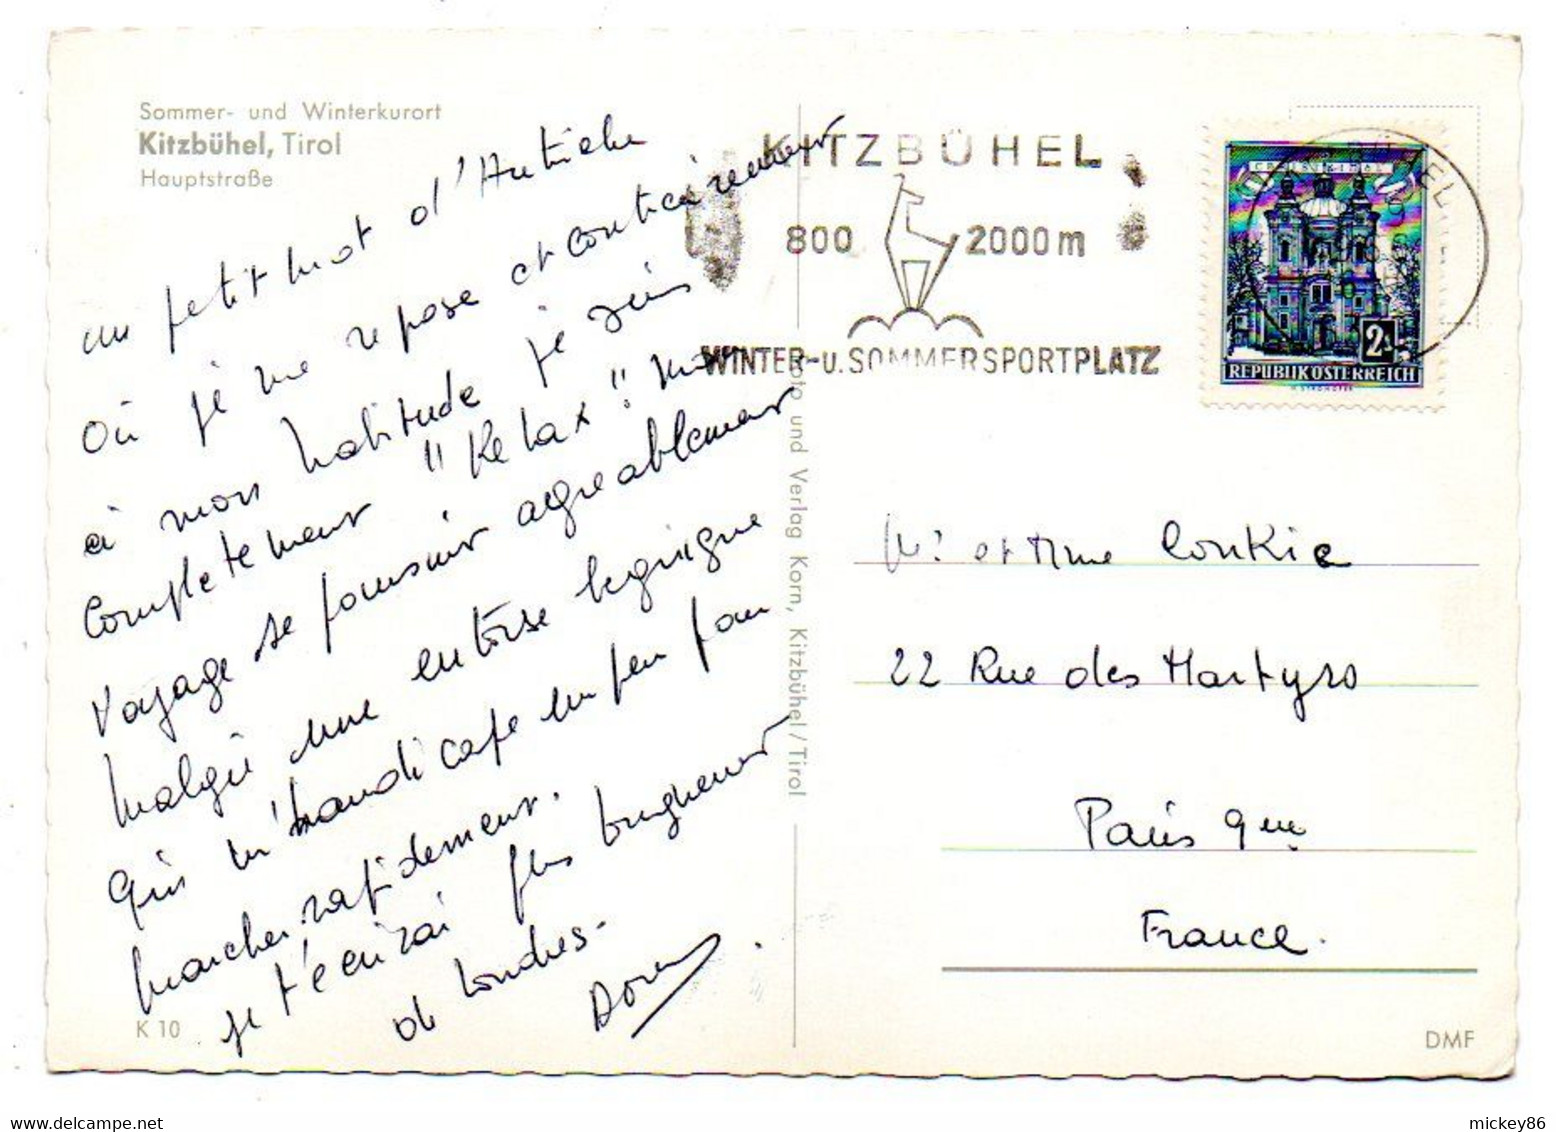 Sommer- und Winterkurort
Kitzbühel, Tirol
Hauptstraße
un petit mot d'Autriche
où je me repose et contrairement
à mon habitude je suis
complètement "Relax". Mon
voyage se poursuit agréablement
malgré une entorse
qui m'handicape un peu pour
marcher rapidement.
je t'écrirai plus longuement
de Londres-
K 10
KITZBÜHEL
800 2000m
WINTER-u. SOMMERSPORTPLATZ
2S
REPUBLIK ÖSTERREICH
Foto und Verlag Korn, Kitzbühel/Tirol
Mr et Mme
22 Rue des Martyrs
Paris 9me
France.
DMF
mickey86